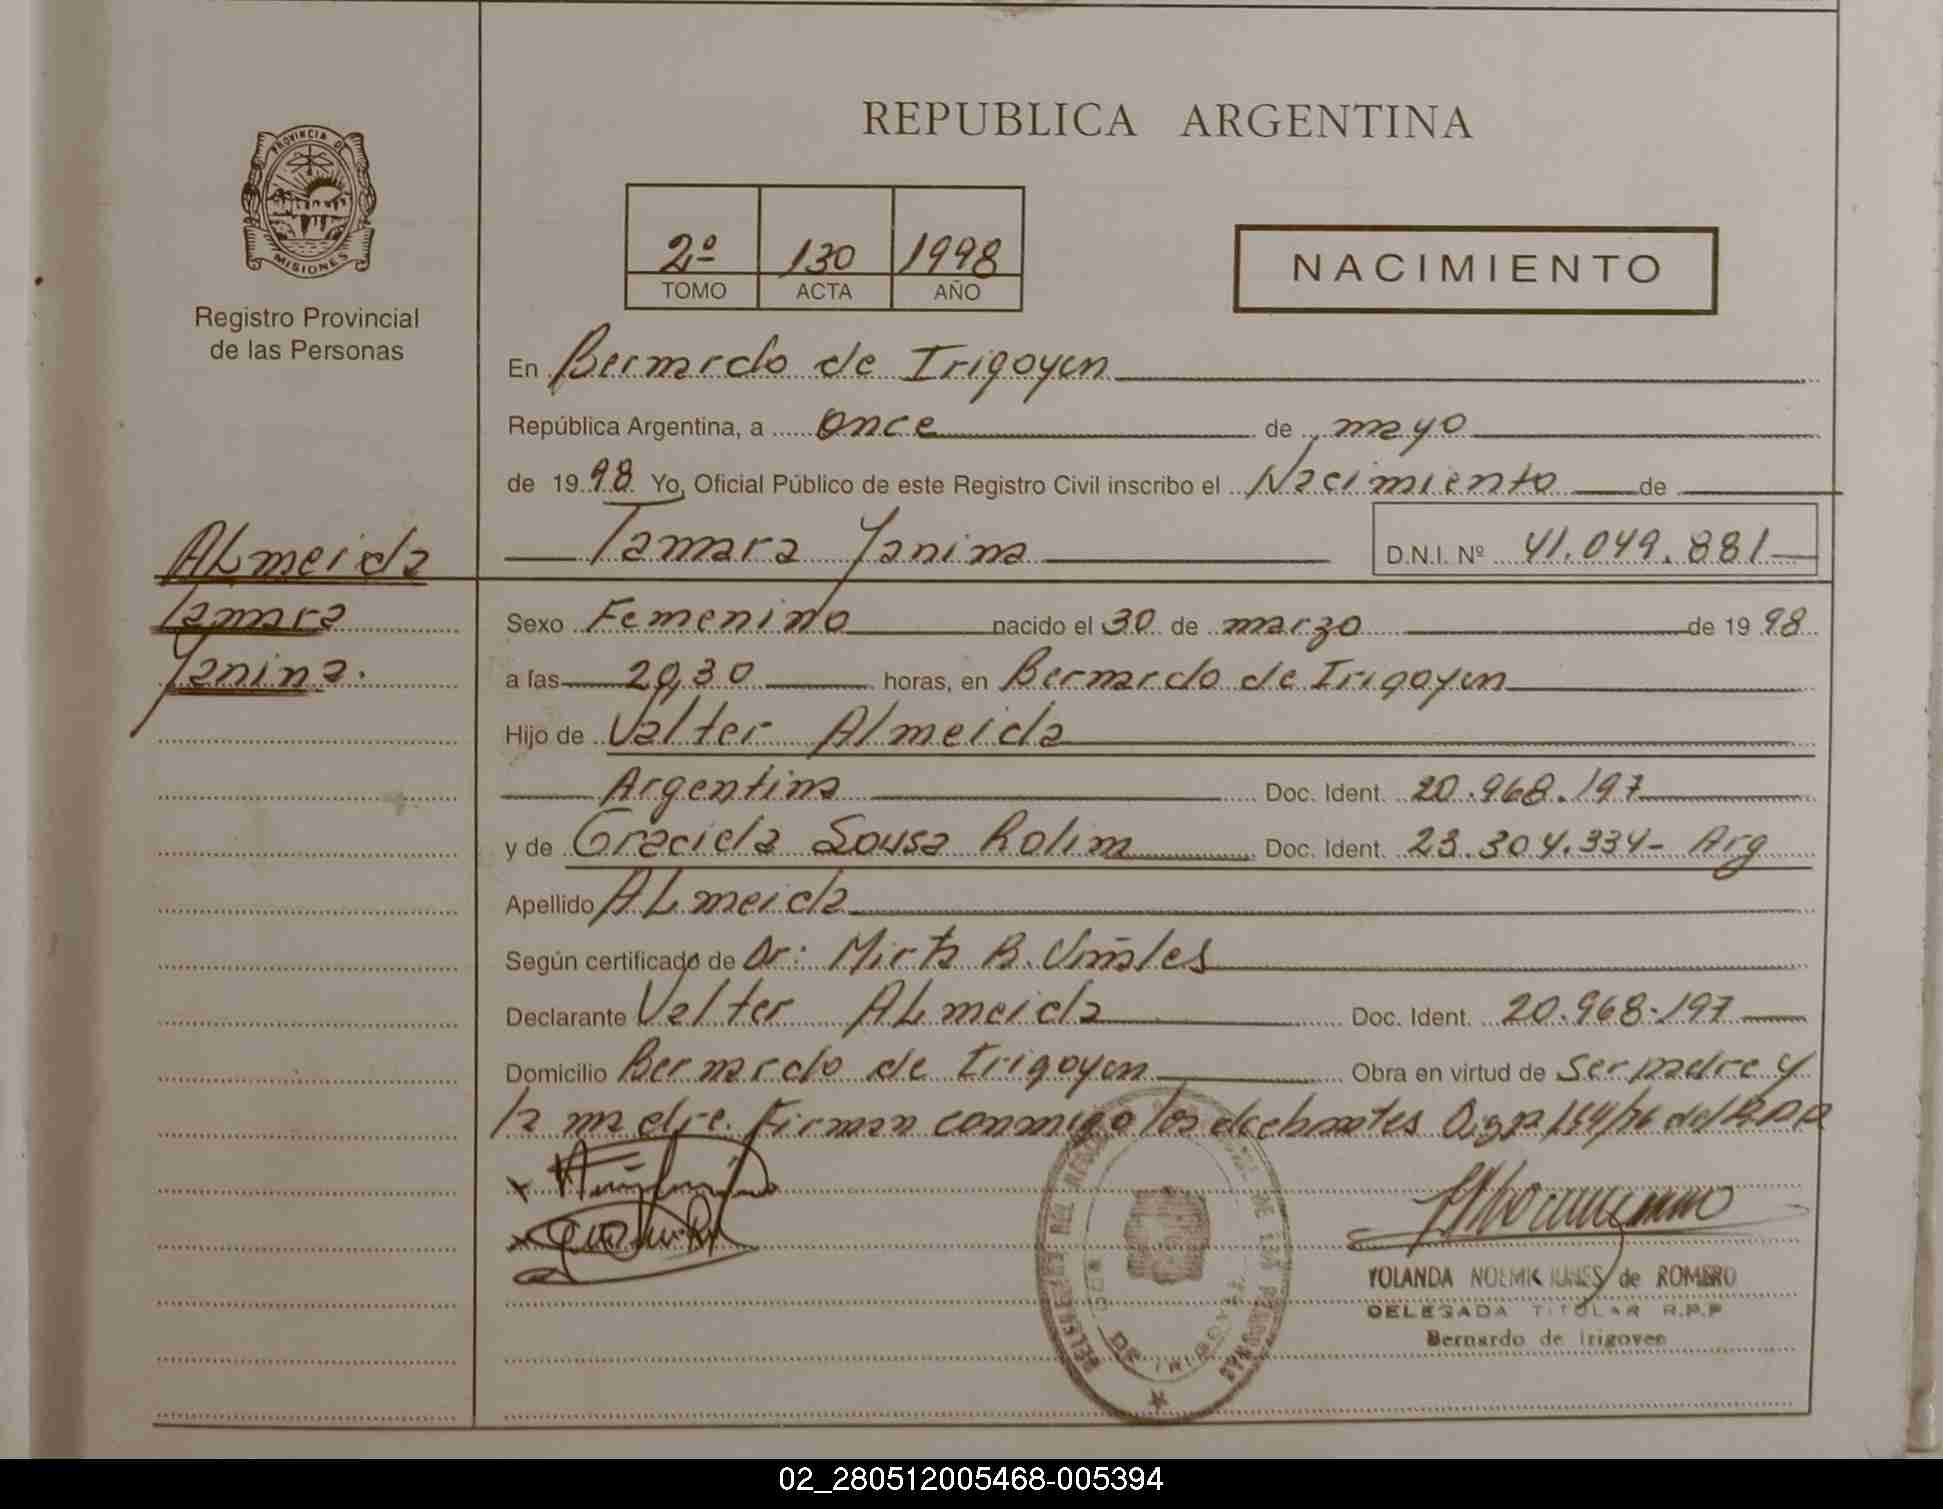 REPUBLICA ARGENTINA
PROVINCIA DE
MISIONES
Registro Provincial
de las Personas
2º 130 1998
TOMO ACTA AÑO
NACIMIENTO
En Bernardo de Irigoyen
República Argentina, a once de mayo
de 1998 Yo, Oficial Público de este Registro Civil inscribo el Nacimiento de
Tamara Yanina D.N.I. Nº 41.049.881
Almeida
Tamara
Yanina.
Sexo Femenino nacido el 30 de marzo de 1998
a las 20,30 horas, en Bernardo de Irigoyen
Hijo de Valter Almeida
Argentina Doc. Ident. 20.968.197
y de Graciela Sousa Rolim Doc. Ident. 23.304.334- Arg
Apellido Almeida
Según certificado de Dr: Mirta B. Viñales
Declarante Valter Almeida Doc. Ident. 20.968.197
Domicilio Bernardo de Irigoyen Obra en virtud de ser padre y
la madre. Firman conmigo los declarantes
YOLANDA de ROMERO
DELEGADA TITULAR R.P.P
Bernardo de Irigoyen
02_280512005468-005394